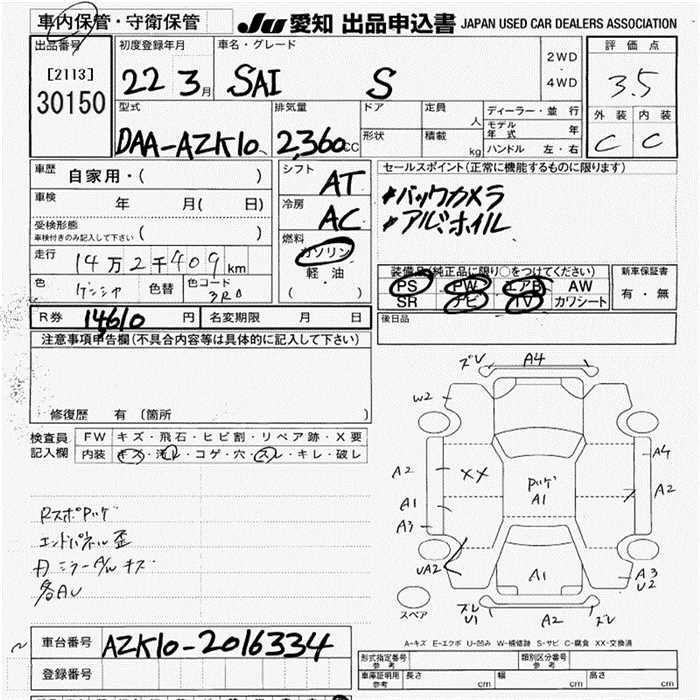 車内保管・守衛保管
JU 愛知 出品申込書 JAPAN USED CAR DEALERS ASSOCIATION
出品番号
[2113]
30150
初度登録年月
22 3月
車名・グレード
SAI S
2WD
・
4WD
評価点
3.5
外装 内装
C C
型式
DAA-AZK10
排気量
2,360cc
ドア
形状
定員
人
積載
kg
ディーラー・並行
モデル年式 年
ハンドル 左・右
車歴
自家用・( )
車検
年 月( 日)
受検形態
車検付きのみ記入して下さい ( )
走行
14万2千409km
色
色替
色コード
3R0
シフト
AT
冷房
AC
燃料
ガソリン
軽・油
( )
セールスポイント(正常に機能するものに限ります)
#バックカメラ
#アルミホイル
装備品(純正品に限り○をつけてください)
PS PW エアB AW
SR ナビ TV カワシート
新車保証書
有・無
後日品
R券 14610円
名変期限 月 日
注意事項申告欄(不具合内容等は具体的に記入して下さい)
修復歴 有 (箇所 )
検査員
記入欄
FW キズ・飛石・ヒビ割・リペア跡・X要
内装 キズ・汚れ・コゲ・穴・スレ・キレ・破レ
エンドパネル歪
各AU
ズレ A4
W2
A4
A2
XX
A1
A2
A1
A3
UA2
A1
A3
U2
ズレ
U1
A2
ズレ
スペア
A-キズ E-エクボ U-凹み W-補修跡 S-サビ C-腐食 XX-交換済
車台番号
AZK10-2016334
登録番号
形式指定番号
参考
類別区分番号
参考
車庫証明用
参考
長さ cm
幅 cm
高さ cm